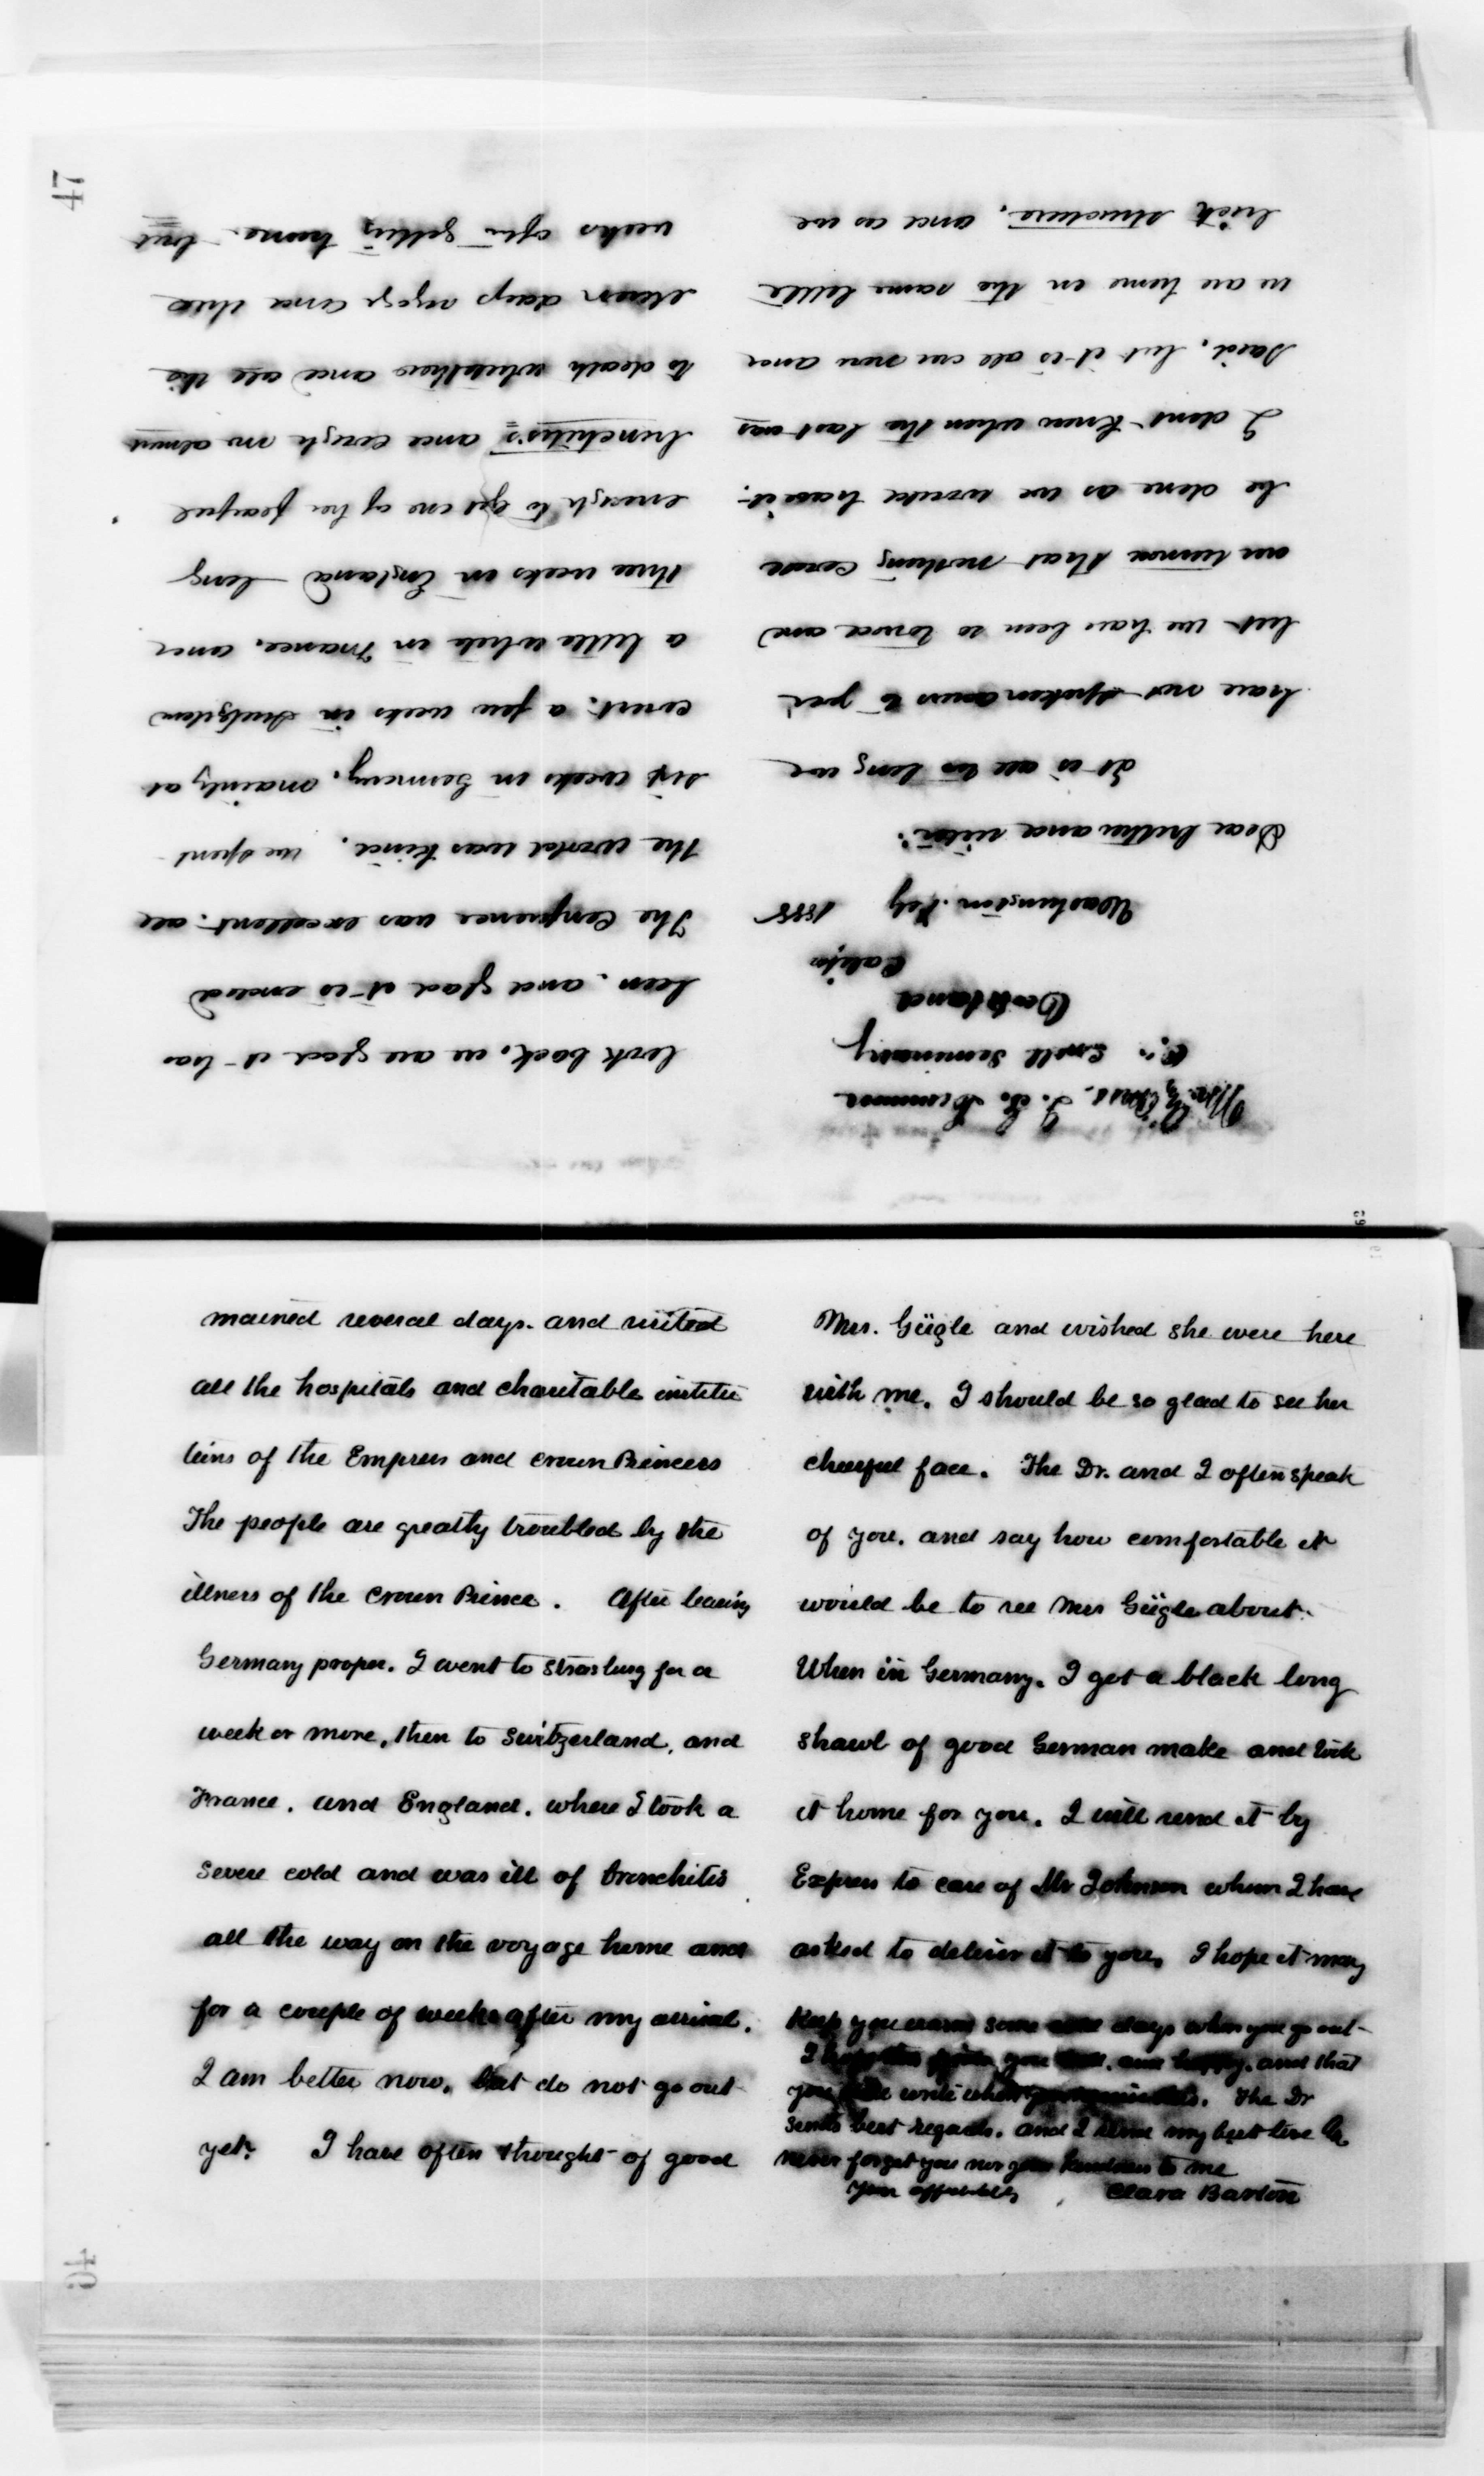 47
Mr. & Mrs. I. G. Kimmor
C/o Snell Seminary
Oakland
Calif
Washington. Feby 1888
Dear brother and sister:
It is all too long we
have not spoken anew to you
but we have been so towed and
are turned that nothing could
be done as we would have it.
I dont know when the last was
said, but it is all our now and
we are home in the same little
brick structure, and as we
look back, we are glad it has
been. and glad it is ended
The Conference was excellent: all
the world was kind. we spent
six weeks in Germany, mainly at
court: a few weeks in Switzerland
a little while in France. and
three weeks in England long
enough to get one of her fearful
bronchitis's and cough me almost
to death whilst there and all the
eleven days voyage and three
weeks after getting home. but
mained several days. and visited
all the hospitals and charitable institu
tions of the Empress and crown Princess
The people are greatly troubled by the
illness of the Crown Prince. After leaving
Germany proper. I went to Strasburg for a
week or more, then to Switzerland, and
France. and England. where I took a
severe cold and was ill of bronchitis
all the way on the voyage home and
for a couple of weeks after my arrival.
I am better now, but do not go out
yet. I have often thought of good
Mrs. Gügle and wished she were here
with me. I should be so glad to see her
cheerful face. The Dr. and I often speak
of you. and say how comfortable it
would be to see Mrs Gügle about.
When in Germany. I got a black long
shawl of good German make and took
it home for you. I will send it by
Express to care of Mr Johnson whom I have
asked to deliver it to you. I hope it may
keep you warm some cold days when you go out-
I hope this finds you well. and happy. and that
you will write when. The Dr
sends best regards. and I send my best love &
never forget you nor your kindness to me
Your affectionately Clara Barton
46